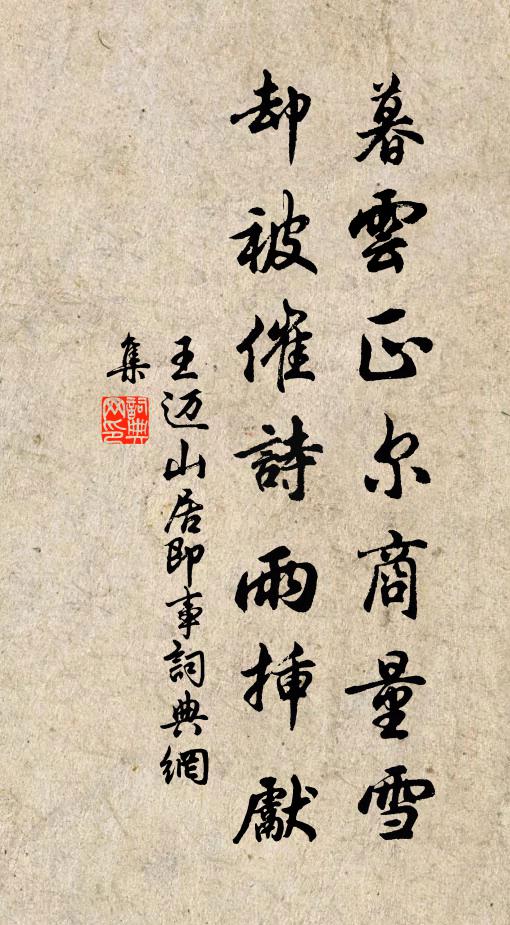 暮雲正尔商量雪
却被催詩雨插獻
王迈山居即事詞典網
集
詞典
网印